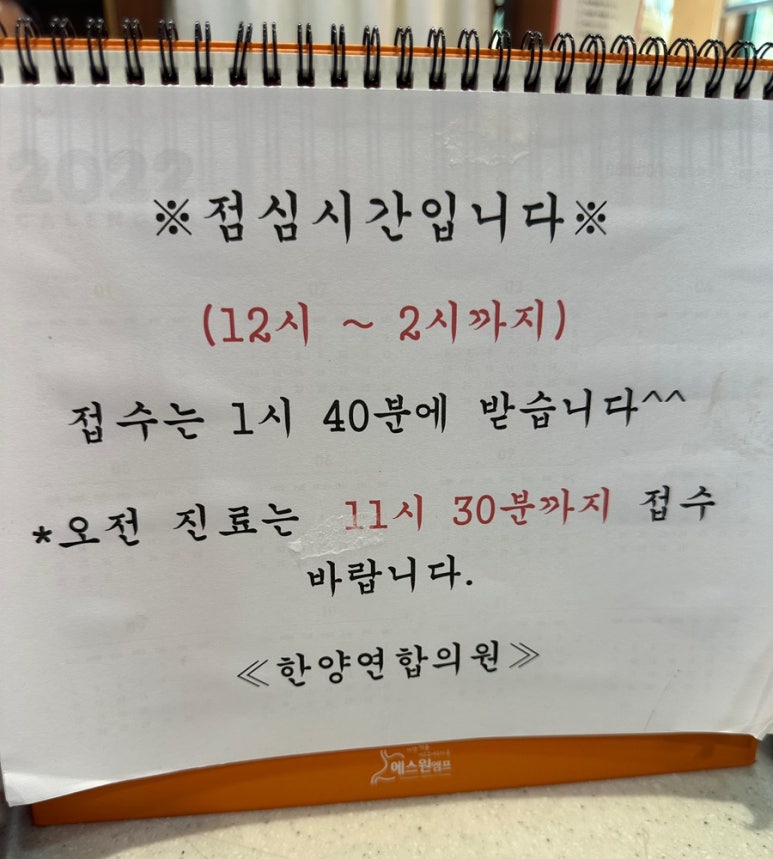 2022
※점심시간입니다※
(12시 ~ 2시까지)
접수는 1시 40분에 받습니다^^
*오전 진료는 11시 30분까지 접수
바랍니다.
≪한양연합의원≫
에스원엠프